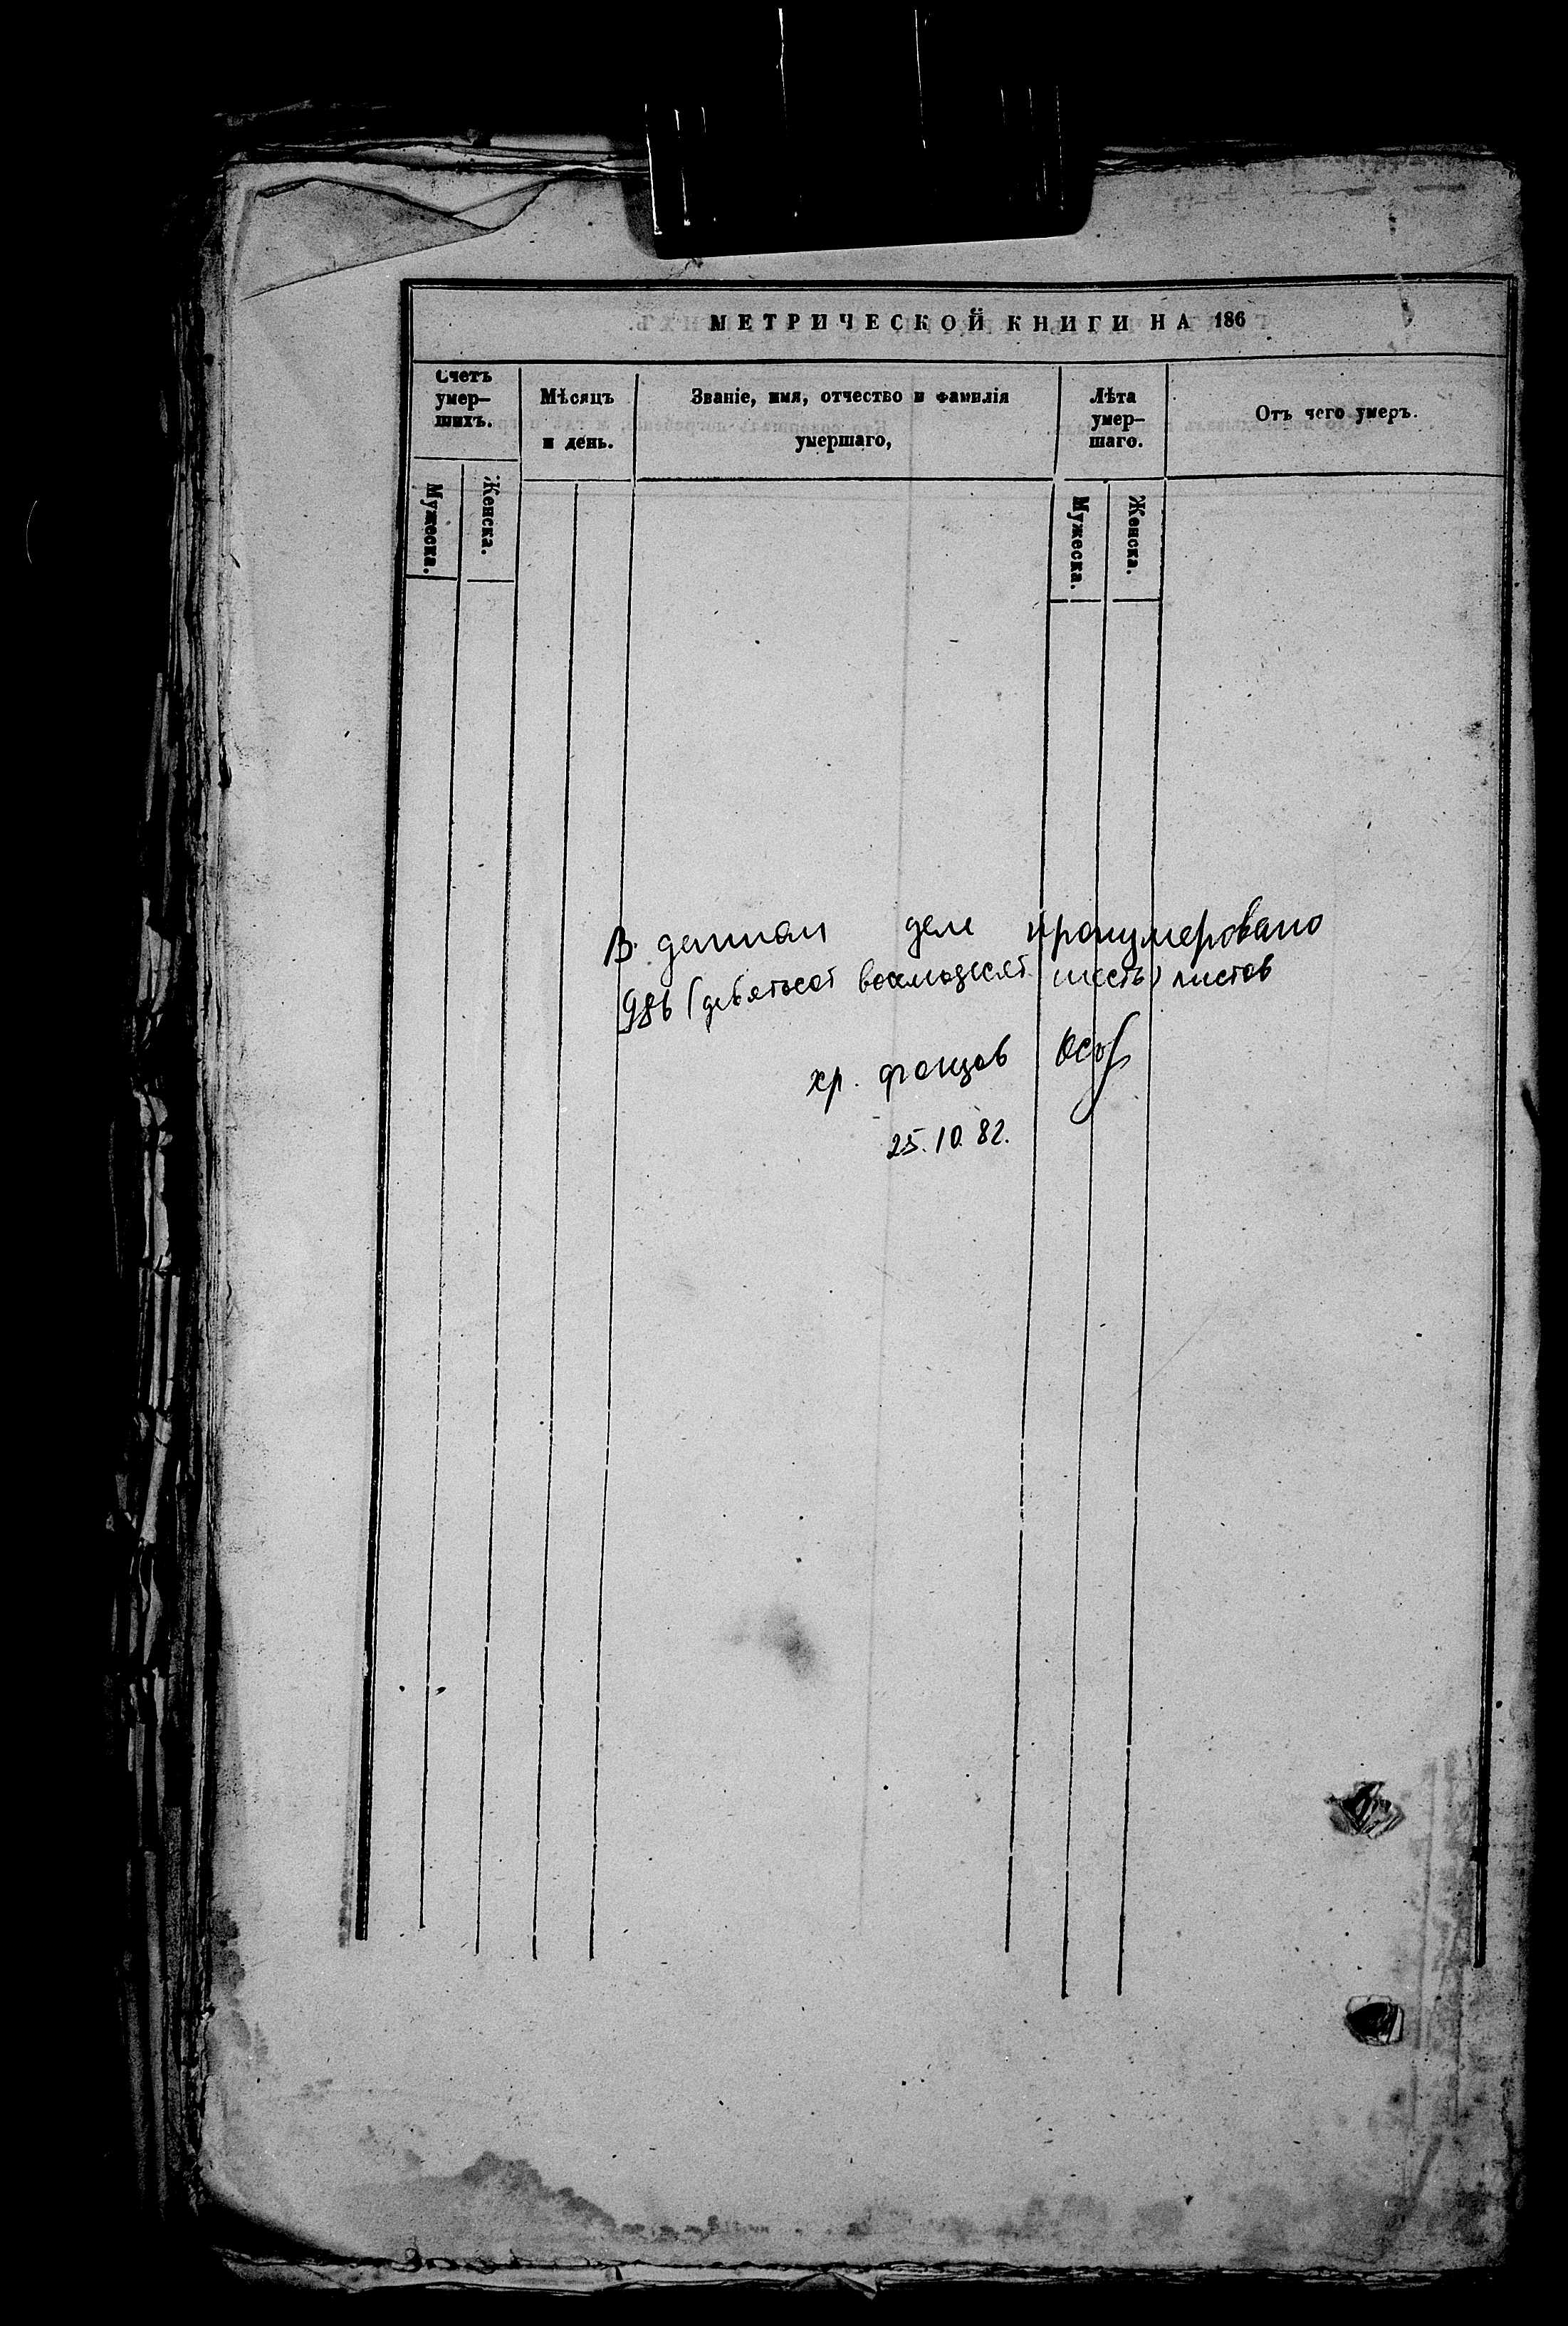 МЕТРИЧЕСКОЙ КНИГИ НА 186
Счетъ
умер-
шихъ.
Мужеска.
Женска.
Мѣсяцъ
и день.
Званіе, имя, отчество и фамилія
умершаго,
Лѣта
умер-
шаго.
Мужеска.
Женска.
Отъ чего умеръ.
В данном деле пронумеровано
986 (девятьсот восемьдесят шесть) листов
хр. фондов
25.10.82.